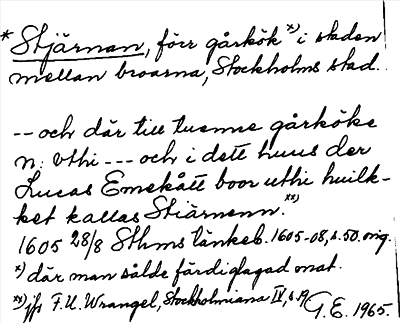 * Stjärnan, förr gårkök x) i staden
mellan broarna, Stockholms stad.
-- och där till tuenne gårköke
n: uthi --- och i dett huus der
Lucas Emekått boor uthi huilk-
ket kallas Stiärnenn. xx)
1605 28/8 Sthms tänkeb. 1605-08, s. 50. orig.
x) där man sålde färdiglagad mat.
xx) jfr F. U. Wrangel, Stockholmiana IV, s. 19
G. E. 1965.